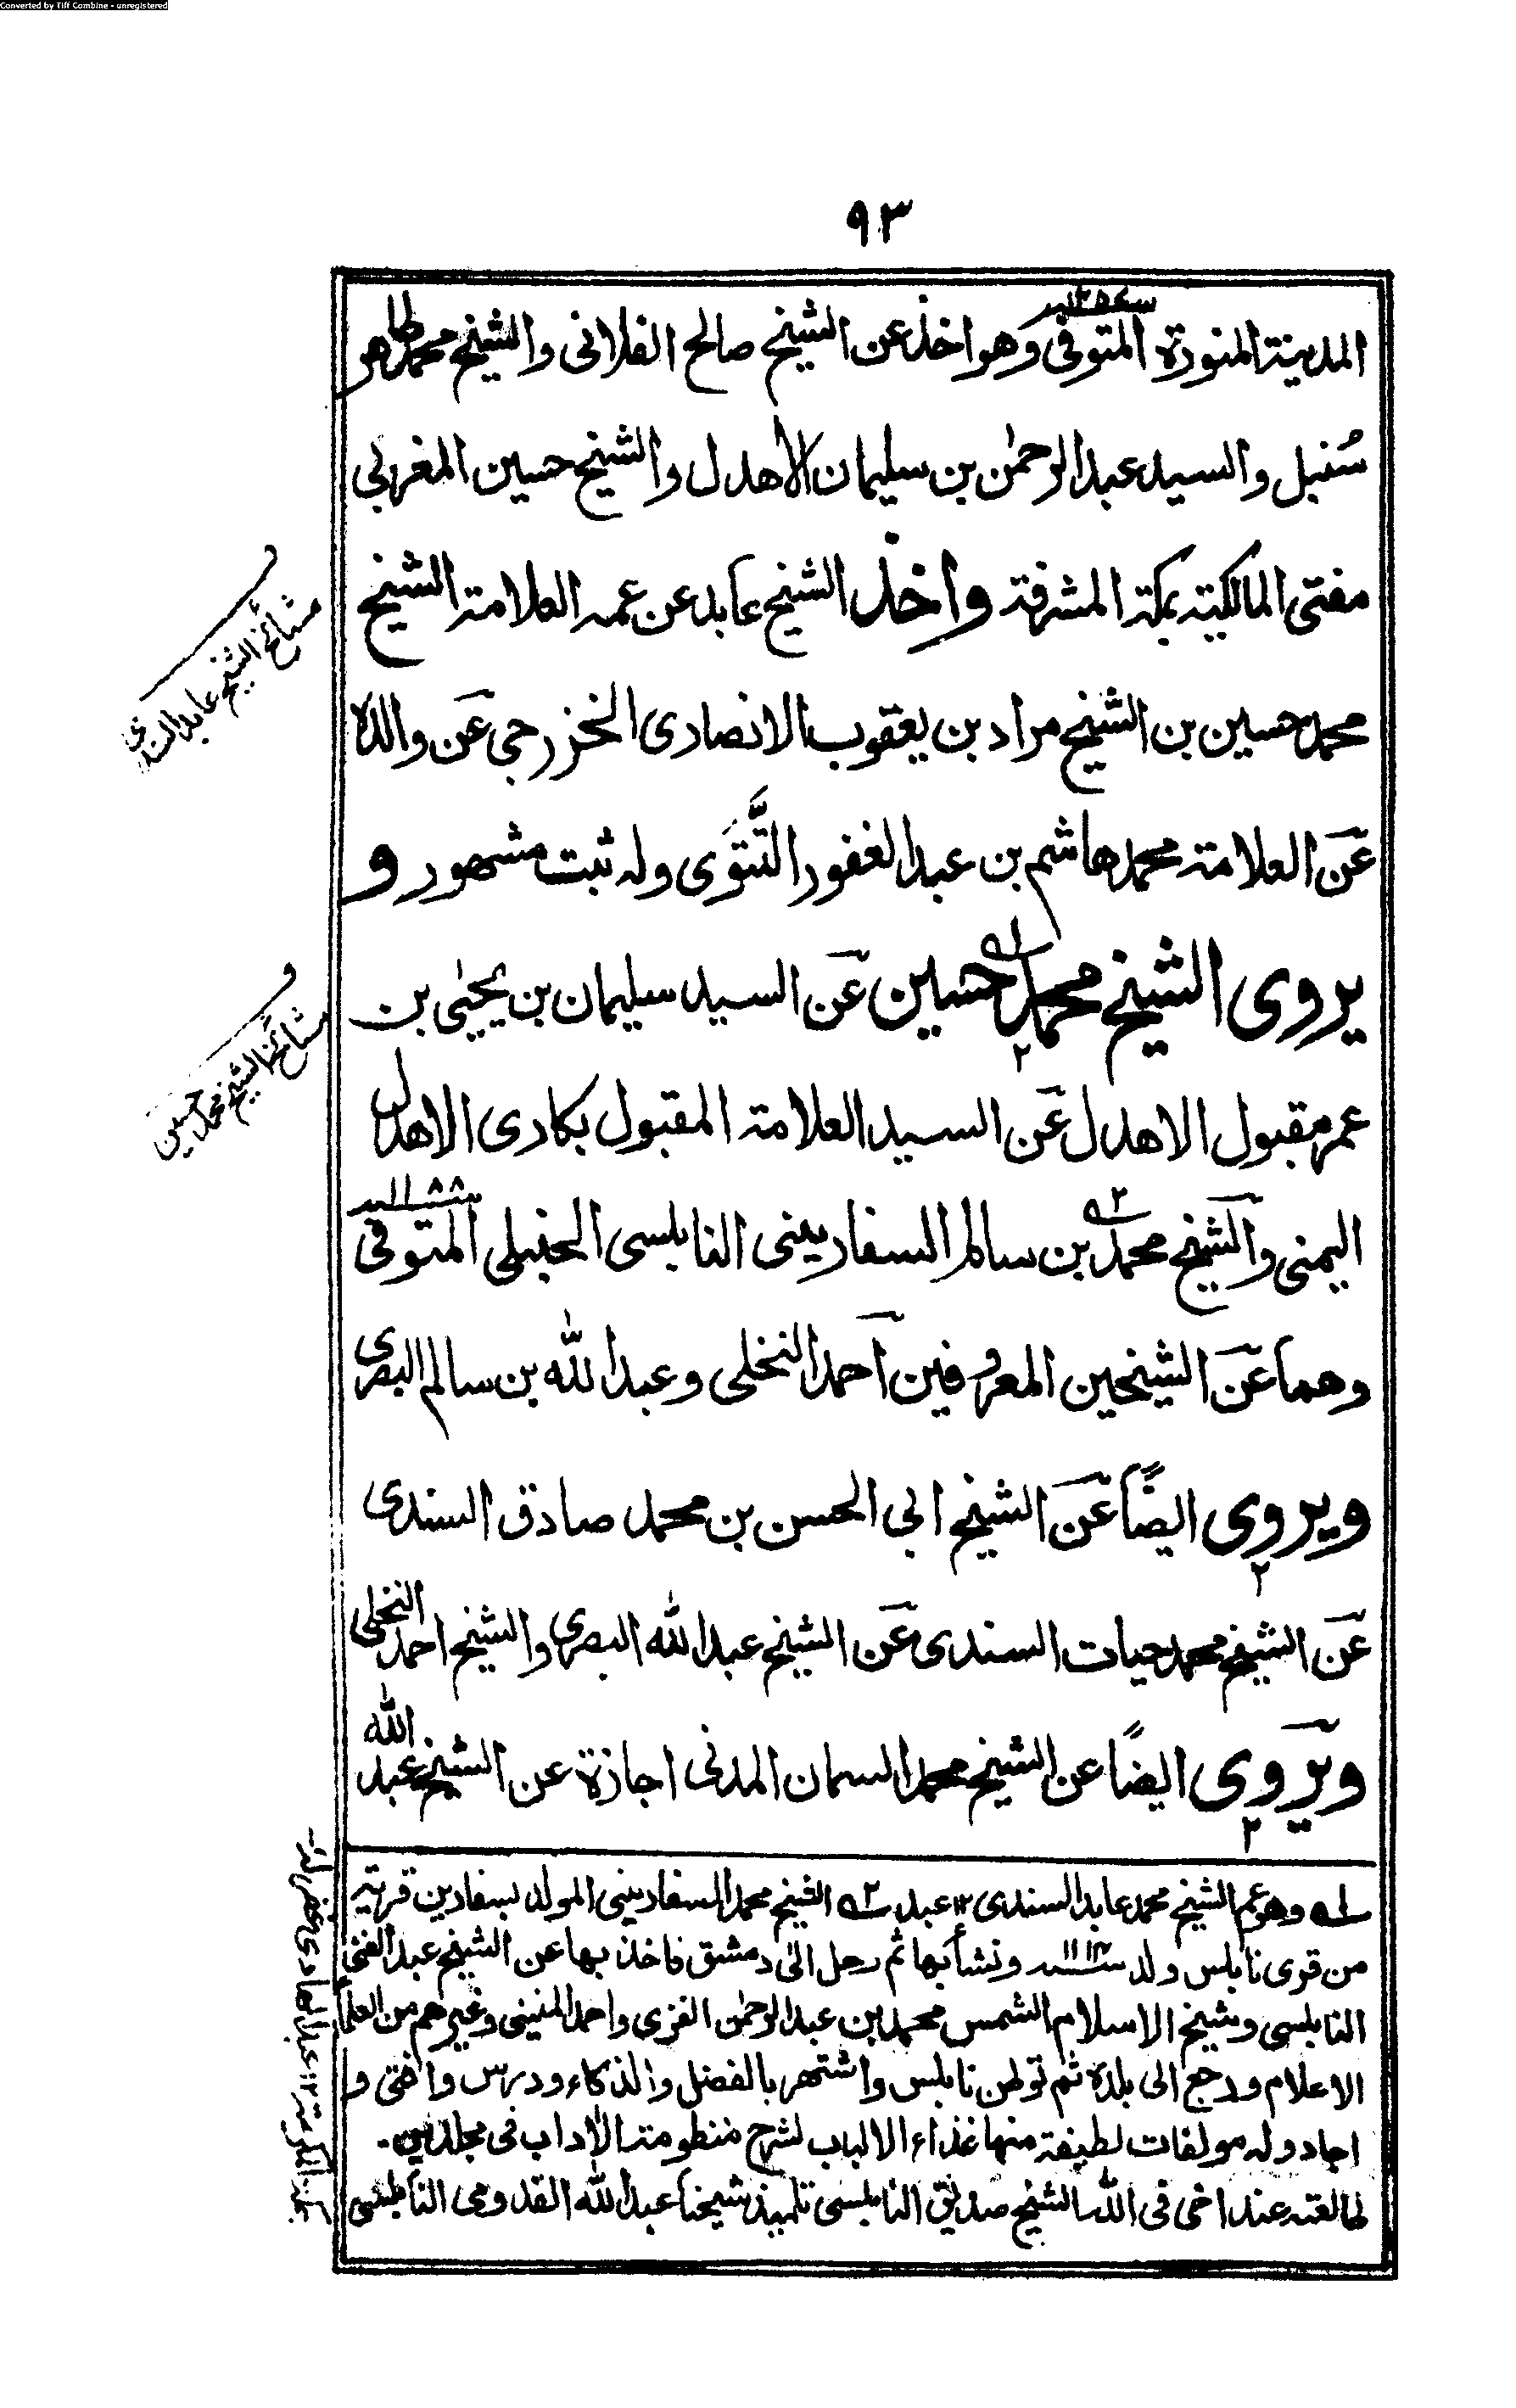 Converted by Tiff Combine - unregistered
٩٣
المدينة المنورة المتوفى وهو اخذ عن الشيخ صالح الفلانى والشيخ محمد طاهر
سُنبل والسيد عبد الرحمٰن بن سليمان الأهدل والشيخ حسين المغربى
مفتى المالكية بمكة المشرفة واخذ الشيخ عابد عن عمه العلامة الشيخ
محمد حسين بن الشيخ مراد بن يعقوب الانصارى الخزرجى عن والده
عن العلامة محمد هاشم بن عبد الغفور التَّتَوى وله ثبت مشهور و
يروى الشيخ محمد حسين عن السيد سليمان بن يحيٰى بن
عمر مقبول الاهدل عن السيد العلامة المقبول بكارى الاهدل
اليمنى والشيخ محمد بن سالم السفارينى النابلسى الحنبلى المتوفى ١١٨٨
وهما عن الشيخين المعروفين احمد النخلى وعبد الله بن سالم البصرى
ويروى ايضًا عن الشيخ ابى الحسن بن محمد صادق السندى
عن الشيخ محمد حيات السندى عن الشيخ عبد الله البصرى والشيخ احمد النخلى
ويروى ايضًا عن الشيخ محمد السمان المدنى اجازة عن الشيخ عبد الله
مشائخ الشيخ عابد السندى
مشائخ الشيخ محمد حسين
له وهو عم الشيخ محمد عابد السندى ١٢ عبد ٢ه الشيخ محمد السفارينى المولد بسفارين قرية
من قرى نابلس ولد ونشأ بها ثم رحل الى دمشق فاخذ بها عن الشيخ عبد الغنى
النابلسى وشيخ الاسلام الشمس محمد بن عبد الرحمٰن الغزى واحمد المنينى وغيرهم من العلماء
الاعلام ورجع الى بلده ثم توطن نابلس واشتهر بالفضل والذكاء ودرس وافتى و
اجاد وله مولفات لطيفة منها غذاء الالباب لشرح منظومة الأداب فى مجلدين.
طالعته عند اخى فى الله الشيخ صديق النابلسى تلميذ شيخنا عبد الله القدومى النابلسى